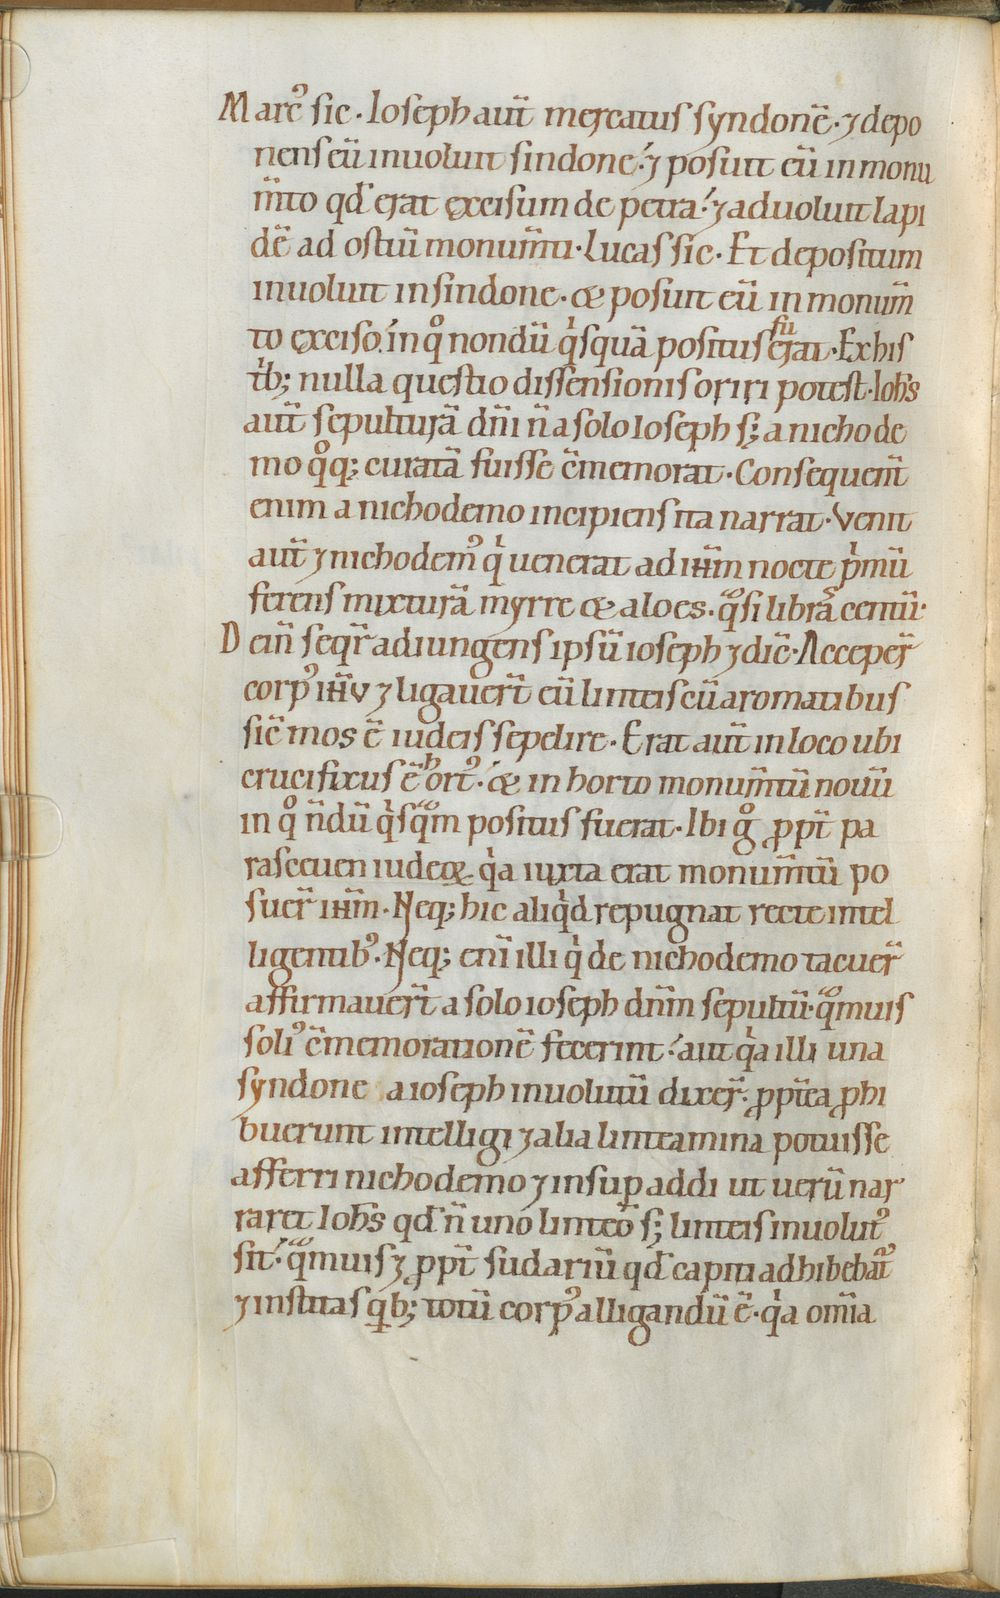 Marc᾿ sic. Ioseph aut̄ mercatus syndonē. ⁊ depo
nens eū inuoluit sindone. ⁊ posuit eū in monu
m̄to qd̄ erat excisum de petra. ⁊ aduoluit lapi
dē ad ostiū monum̄ti. Lucas sic. Et depositum
inuoluit in sindone. & posuit eū in monum̄
to exciso. in qͦ nondū qͥsquā positus fuerat. Ex his
t̄b; nulla questio dissensionis oriri potest. Ioh̄s
aut̄ sepulturā dn̄i n̄ a solo Ioseph s; a nichode
mo qͦq; curatā fuisse c̄memorat. Consequent̄
enim a nichodemo incipiens ita narrat. Venit
aut̄ ⁊ nichodem᾿ qͥ uenerat ad ih̄m nocte pͥmū
ferens mixturā myrre & aloes. qͣsi librā centū.
Dein̄ seqr̄ adiungens ipsū ioseph ⁊ dic̄. Acceper̄
corp᾿ ih̄u ⁊ ligauer̄t eū linteis cū aromatibus
sic̄ mos ē iudeis sepelire. Erat aut̄ in loco ubi
crucifixus ē hort᾿. & in horto monum̄tū nouū
in qͦ n̄dū qͥsqͣm positus fuerat. Ibi gͦ ꝓpt̄ pa
rasceuen iudeoꝝ qͥa iuxta erat monum̄tū po
suer̄ ih̄m. Neq; hic aliqͥd repugnat recte intel
ligentib᾿. Neq; eni̅ illi qͥ de nichodemo tacuer̄
affirmauer̄t a solo ioseph dn̄m sepultū. qͣmuis
soli᾿ c̄memorationē fecerint. aut qͥa illi una
syndone a ioseph inuolutū dixer̄. ꝓpt̄ea ꝓhi
buerunt intelligi ⁊ alia linteamina potuisse
afferri nichodemo ⁊ insuꝑ addi ut uerū nar
raret Ioh̄s qd̄ n̄ uno linteo s; linteis inuolut᾿
sit. qͣmuis ⁊ ꝓpt̄ sudariū qd̄ capiti adhibebat᾿
⁊ institas qͥb; totū corp᾿ alligandū ē. qͥa om̄ia